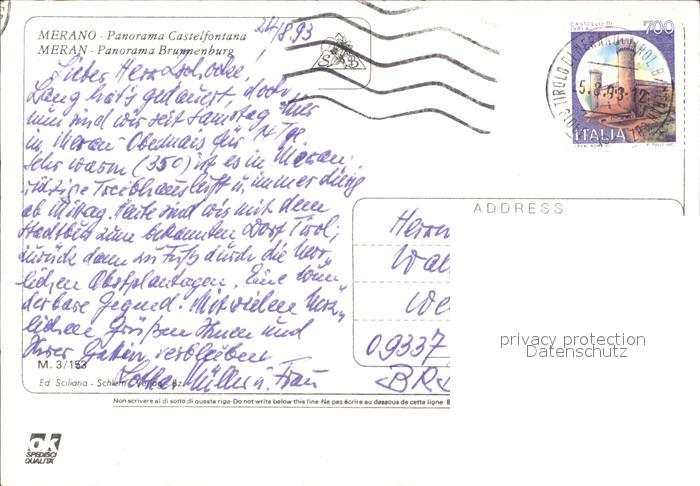 MERANO - Panorama Castelfontana
MERAN - Panorama Brunnenburg
/8.93
Lieber Herr Zschoche,
Lang hat's gedauert, doch
nun sind wir seit Samstag hier
in Meran-Obermais für 14 Tge.
Sehr warm (35°) ist es in Meran;
Treibhausluft u. immer dunstig
ab Mittag. Heute sind wir mit dem
Stadtbus zum bekannten Dorf Tirol;
zurück dann zu Fuß durch die herr-
lichen Obstplantagen. Eine wun-
derbare Gegend. Mit vielen herz-
lichen Grüßen Ihnen und
Ihrer Gattin verbleiben
Lothar Müller u. Frau
M. 3/153
Ed. Siciliana - Bz
CASTELLO DI
IVREA
700
ITALIA
5.8.93-12
ADDRESS
Herrn
Wal
We
09337
<BRD
privacy protection
Datenschutz
Non scrivere al di sotto di questa riga-Do not write below this line-Ne pas écrire au dessous de cette ligne-
ak
SPEDISCI
QUALITÀ